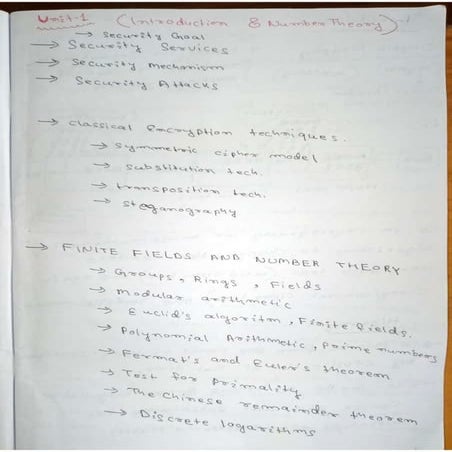 Unit-1 (Introduction & Number Theory)
→ Security Goal
→ Security Services
→ Security mechanism
→ Security Attacks
→ classical Encryption techniques.
→ Symmetric cipher model
→ substitution tech.
→ transposition tech.
→ steganography
→ FINITE FIELDS AND NUMBER THEORY
→ Groups, Rings, Fields
→ Modular arithmetic
→ Euclid's algoritm, Finite fields.
→ Polynomial Arithmetic, Prime numbers
→ Fermat's and Euler's theorem
→ Test for Primality
→ The Chinese remainder theorem
→ Discrete logarithms